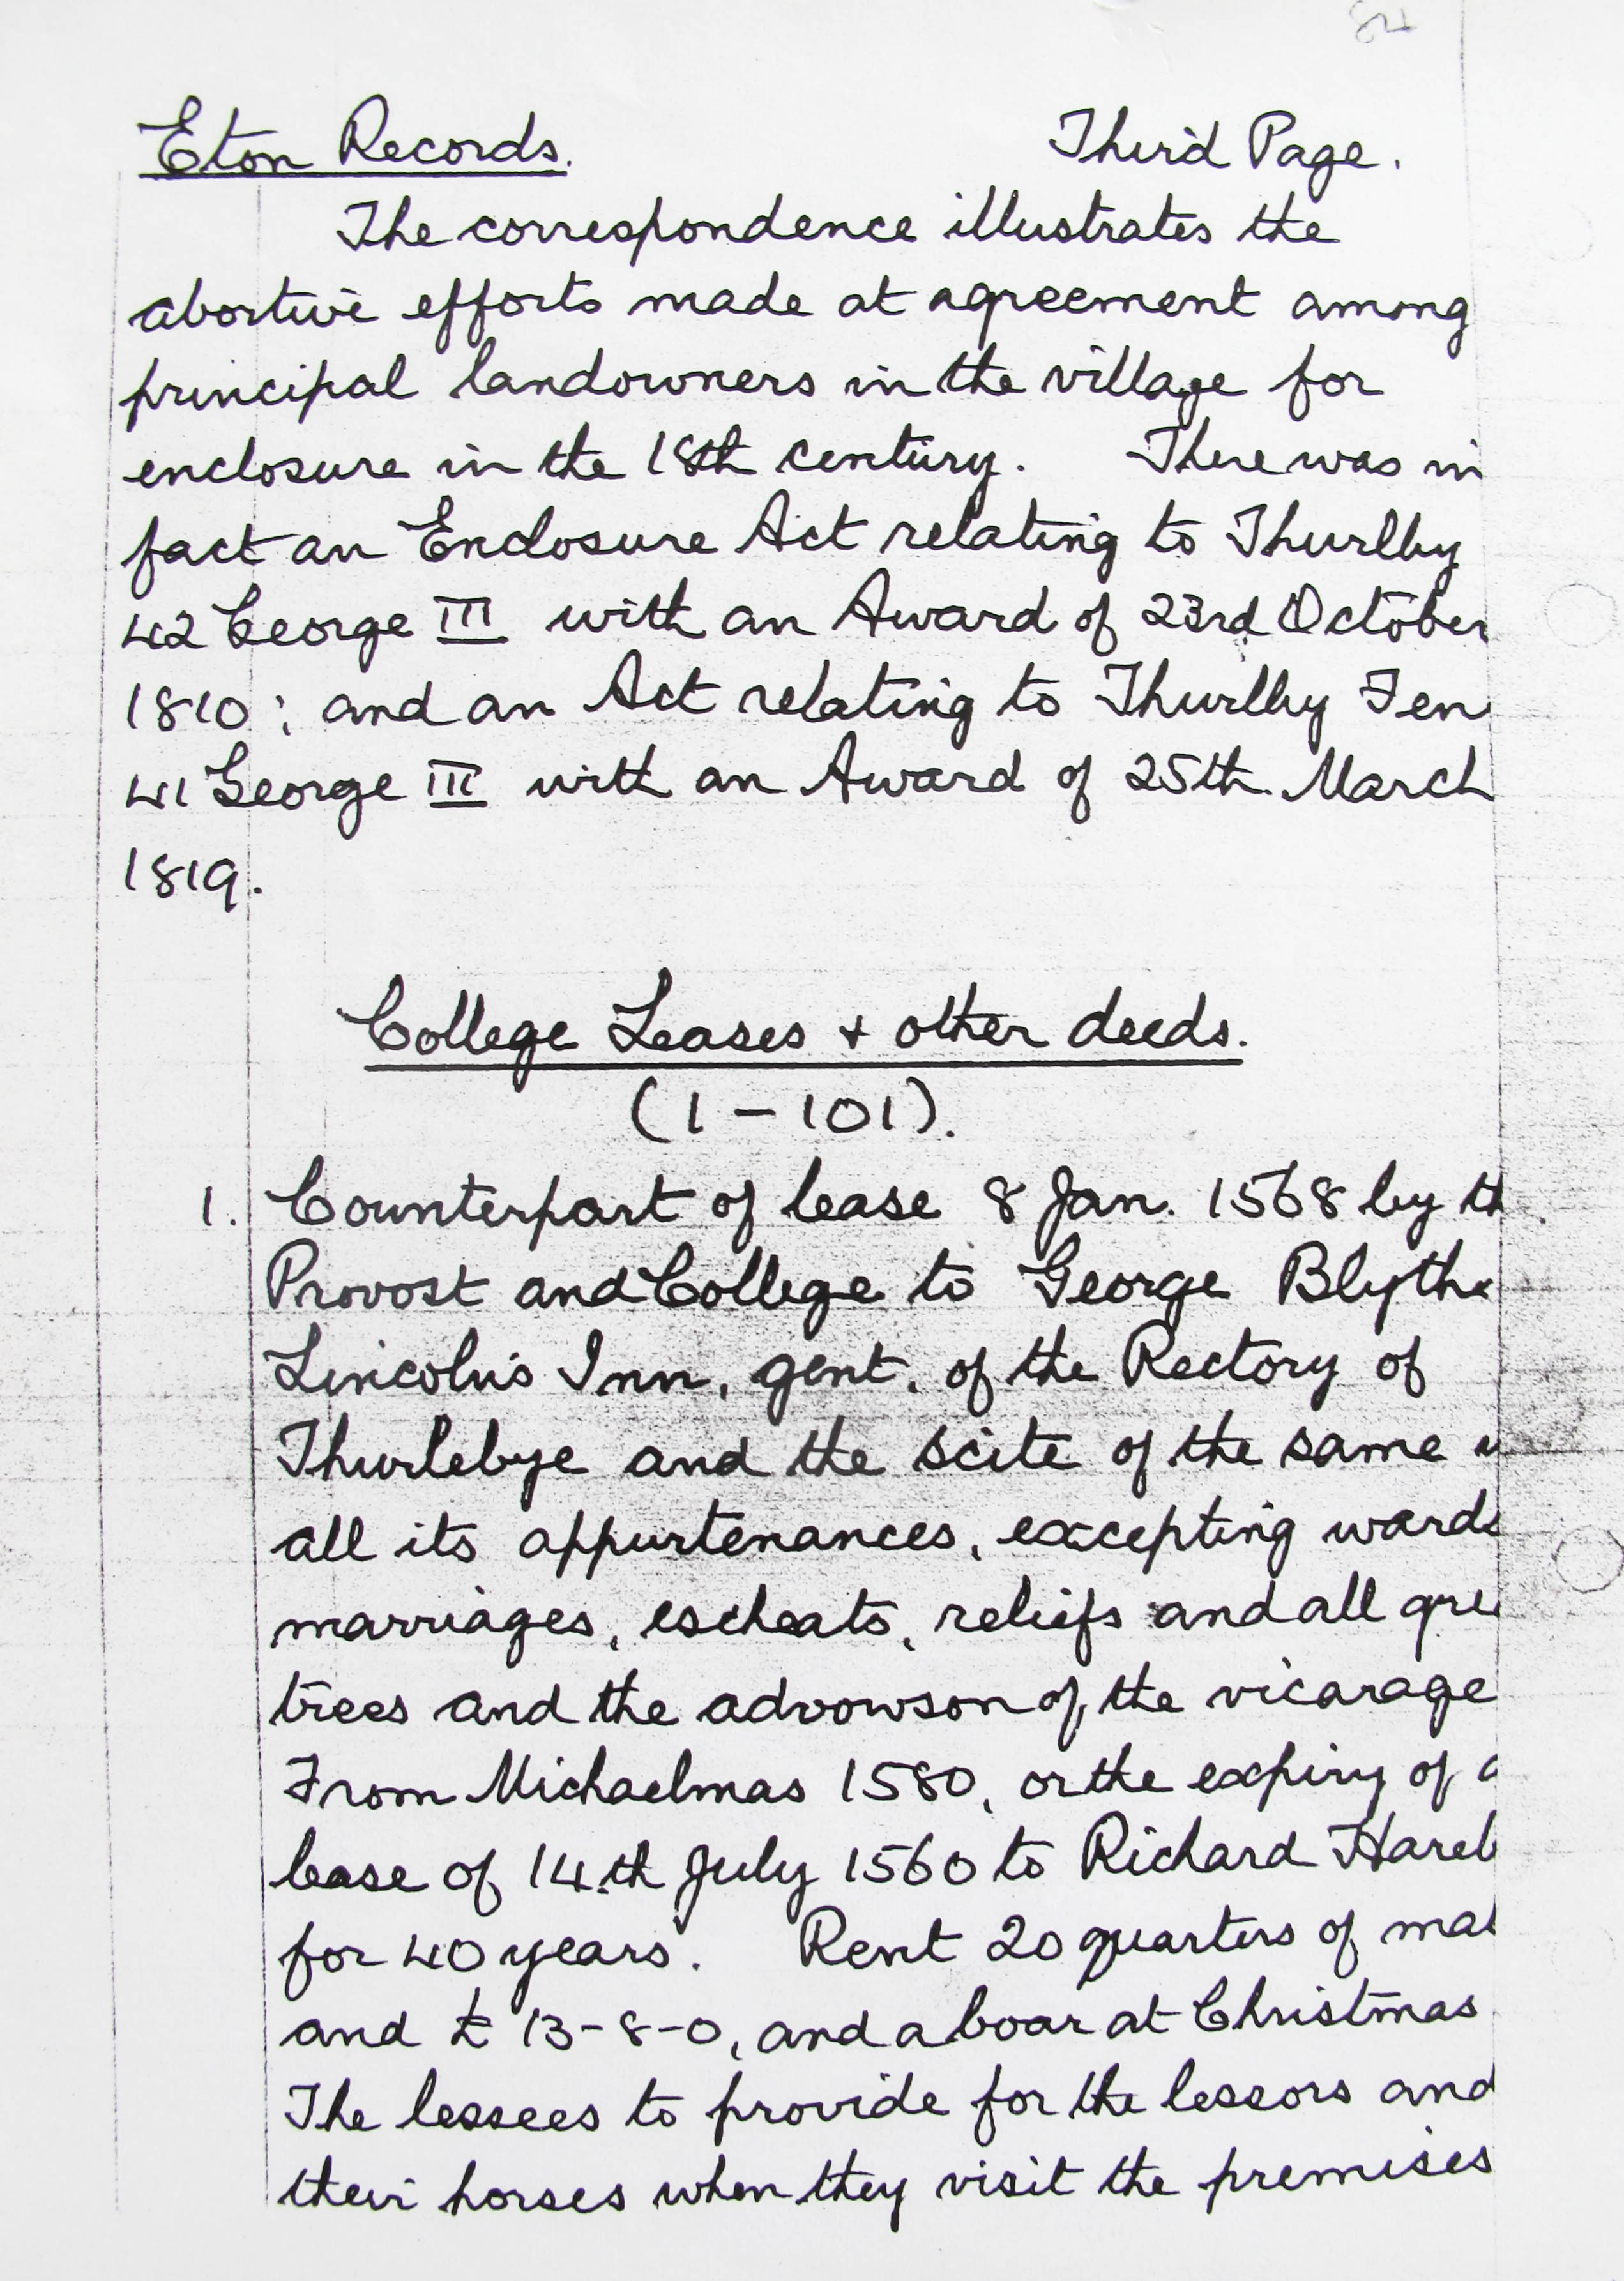 84
Eton Records. Third Page.
The correspondence illustrates the
abortive efforts made at agreement among
principal landowners in the village for
enclosure in the 18th century. There was in
fact an Enclosure Act relating to Thurlby
42 George III with an Award of 23rd October
1810; and an Act relating to Thurlby Fen
41 George III with an Award of 25th March
1819.
College Leases + other deeds.
(1 - 101).
1. Counterpart of lease 8 Jan. 1568 by th
Provost and College to George Blythe
Lincoln's Inn, gent, of the Rectory of
Thurlebye and the scite of the same
all its appurtenances, excepting wards
marriages, escheats, reliefs and all gre
trees and the advowson of the vicarage
From Michaelmas 1580, or the expiry of a
lease of 14th July 1560 to Richard Hareb
for 40 years. Rent 20 quarters of mal
and £ 13-8-0, and a boar at Christmas
The lessees to provide for the lessors and
their horses when they visit the premises